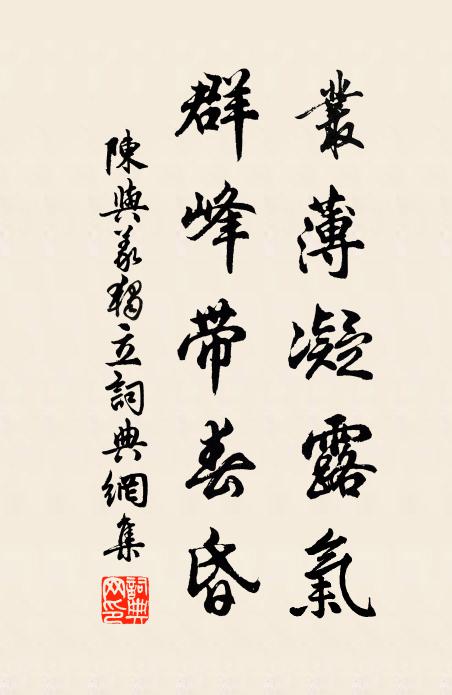 叢薄凝露氣
群峰帶春昏
陳與義獨立詞典網集
詞典网印